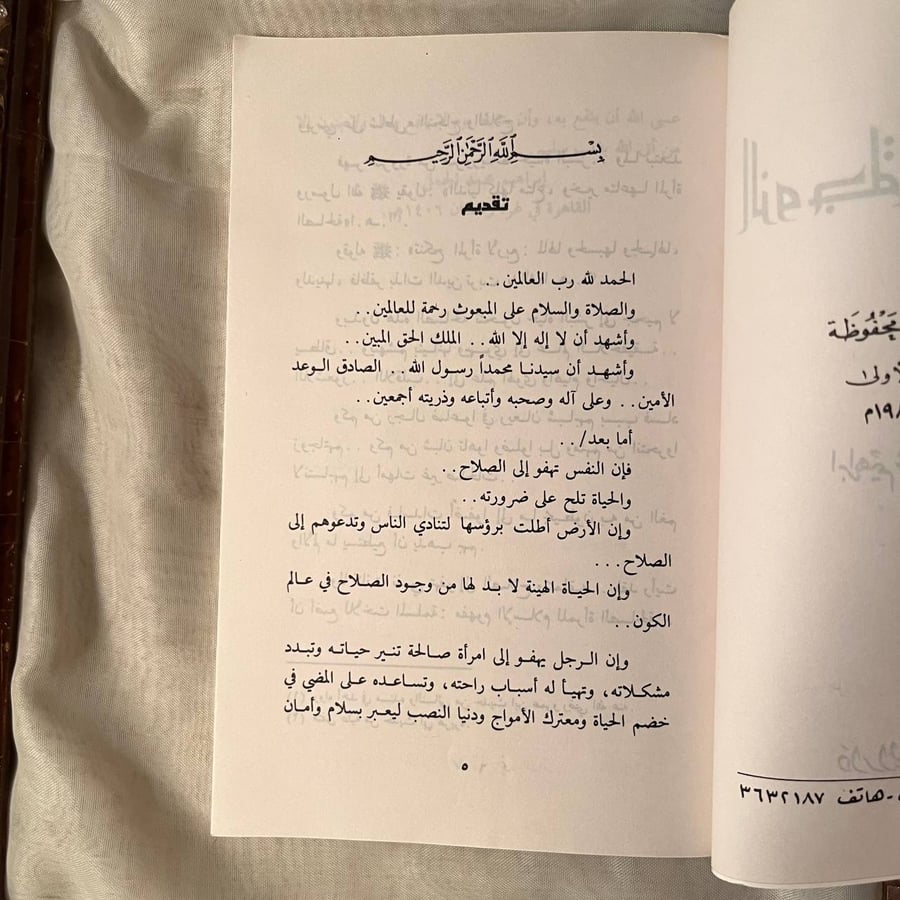 بِسْمِ اللَّهِ الرَّحْمَنِ الرَّحِيمِ
تقديم
الحمد لله رب العالمين..
والصلاة والسلام على المبعوث رحمة للعالمين..
وأشهد أن لا إله إلا الله.. الملك الحق المبين..
وأشهد أن سيدنا محمداً رسول الله.. الصادق الوعد
الأمين.. وعلى آله وصحبه وأتباعه وذريته أجمعين..
أما بعد/..
فإن النفس تهفو إلى الصلاح..
والحياة تلح على ضرورته..
وإن الأرض أطلت برؤسها لتنادي الناس وتدعوهم إلى
الصلاح...
وإن الحياة الهينة لا بد لها من وجود الصلاح في عالم
الكون..
وإن الرجل يهفو إلى امرأة صالحة تنير حياته وتبدد
مشكلاته، وتهيأ له أسباب راحته، وتساعده على المضي في
خضم الحياة ومعترك الأمواج ودنيا النصب ليعبر بسلام وأمان
٥
مَحْفُوظَة
هاتف ٣٦٣٢١٨٧